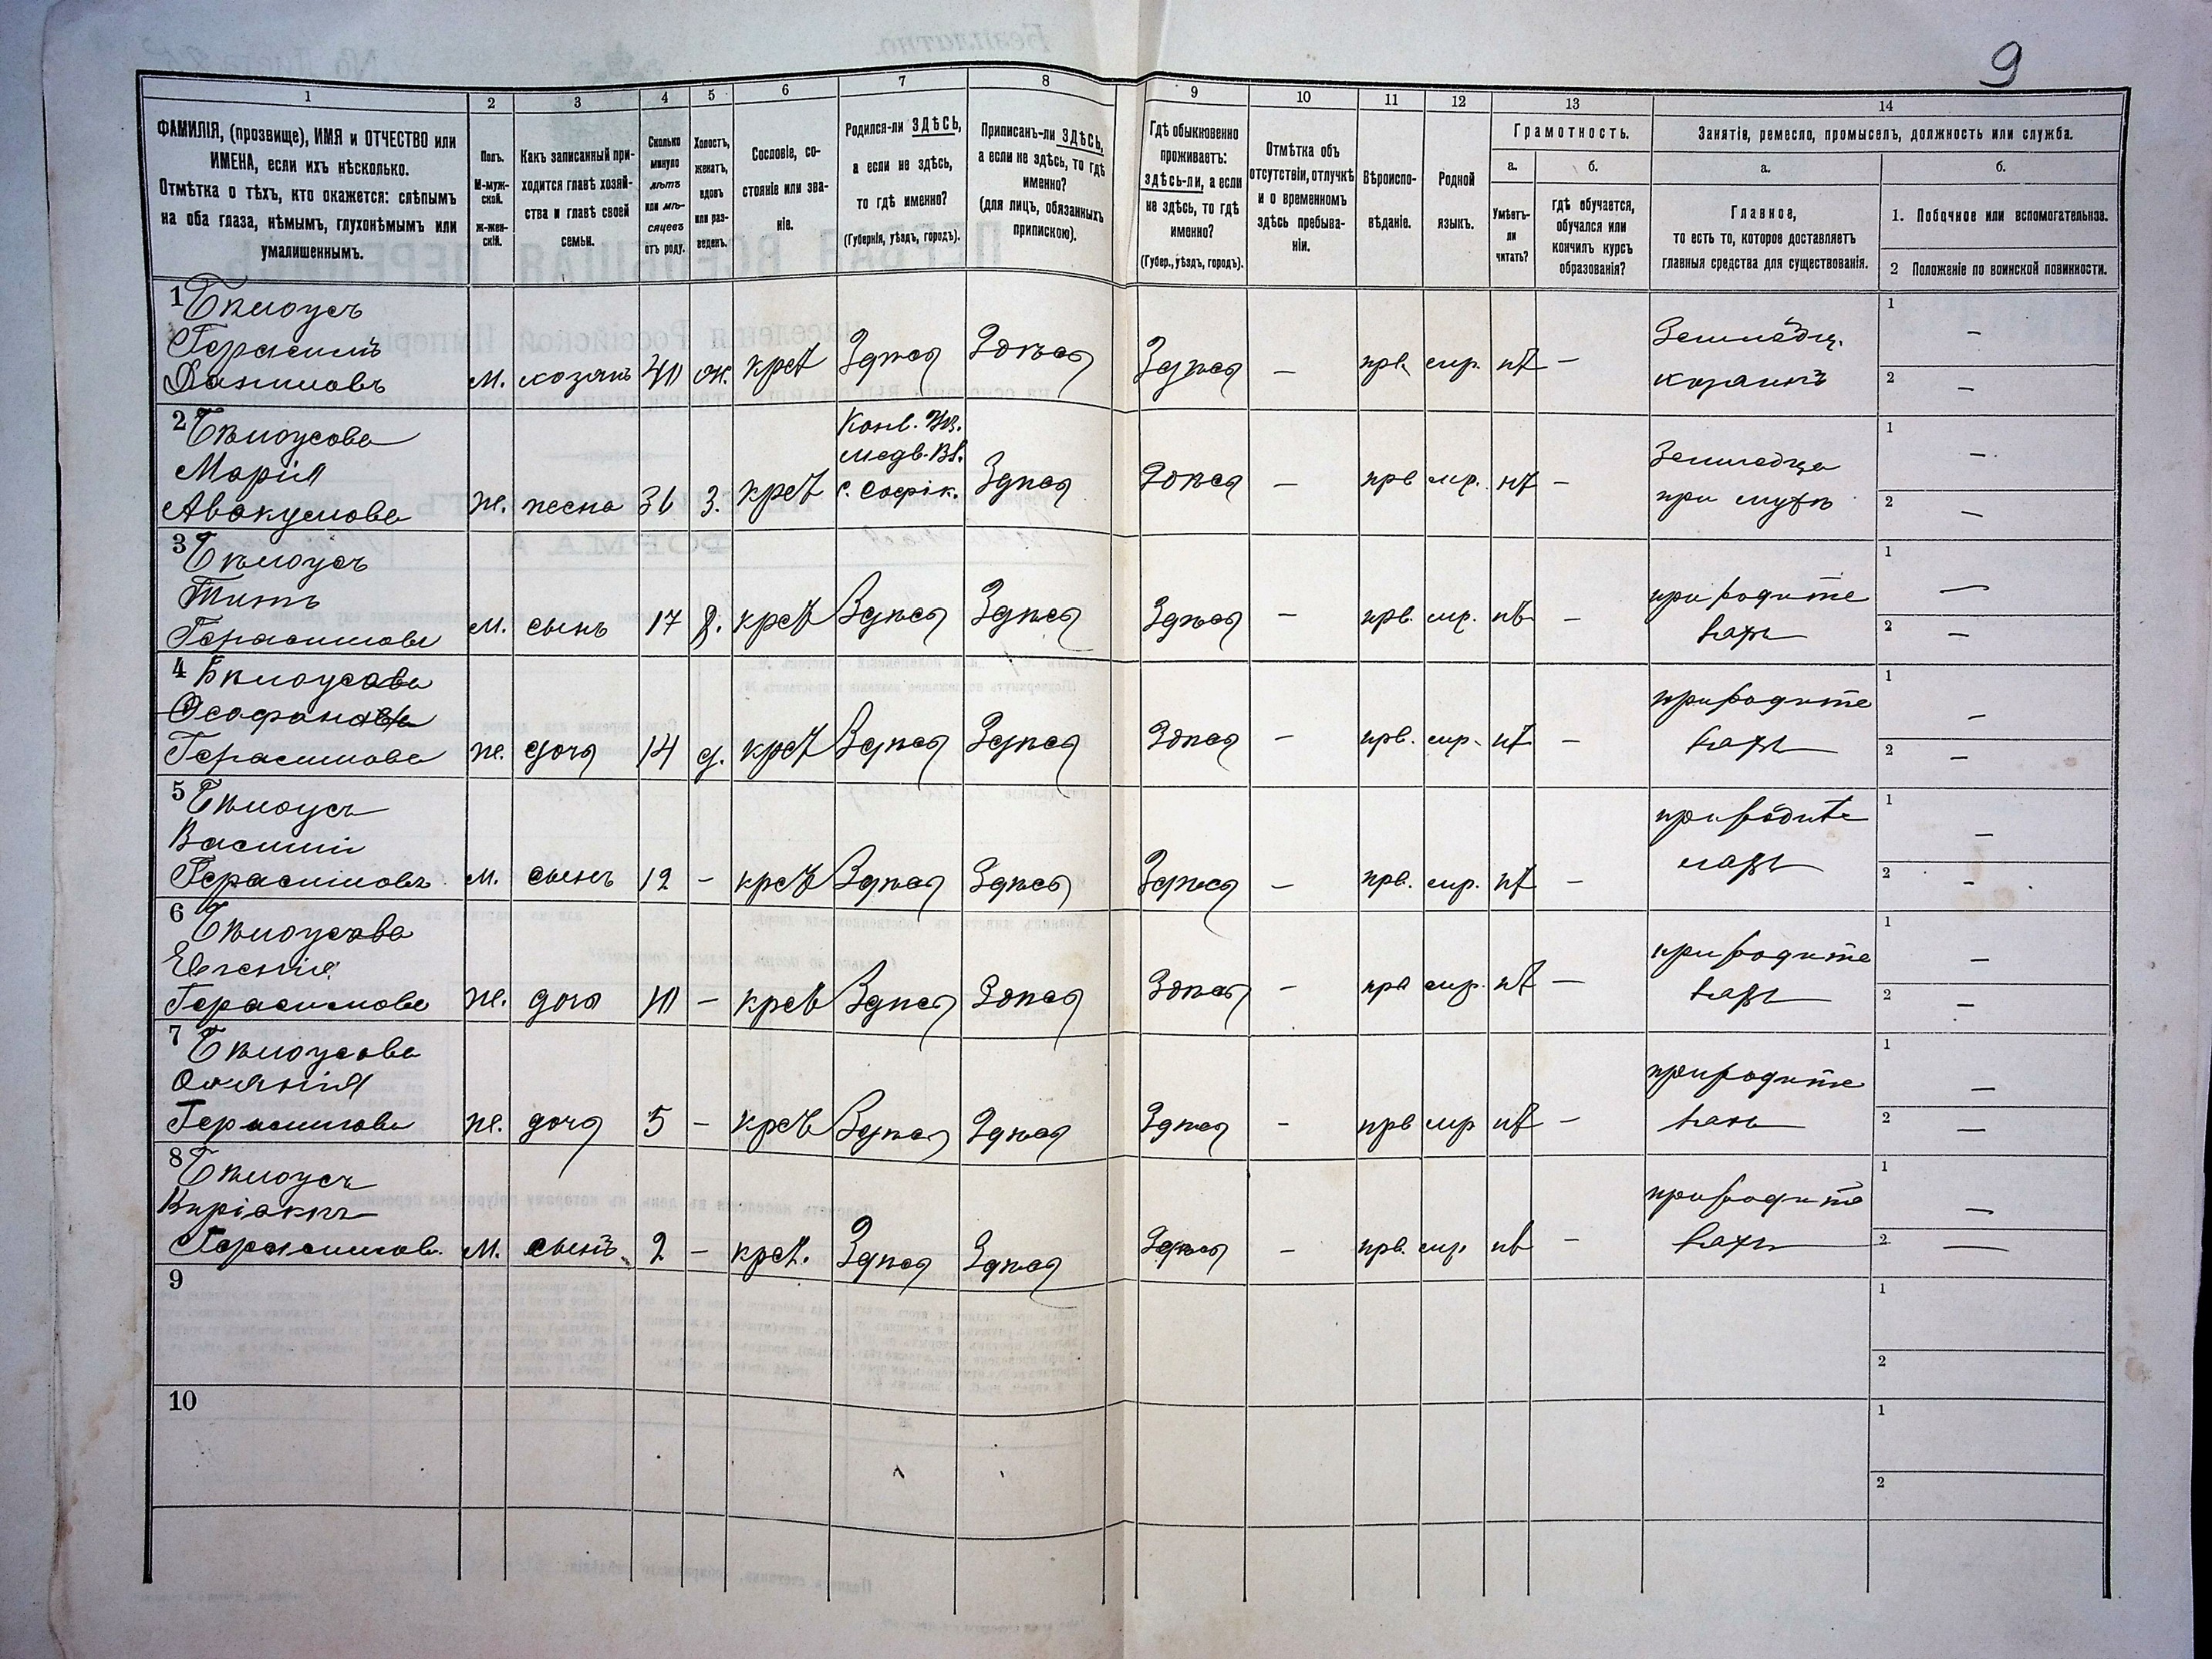 9
1
2
3
4
5
6
7
8
9
10
11
12
13
14
ФАМИЛІЯ, (прозвище), ИМЯ и ОТЧЕСТВО или
ИМЕНА, если ихъ нѣсколько.
Отмѣтка о тѣхъ, кто окажется: слѣпымъ
на оба глаза, нѣмымъ, глухонѣмымъ или
умалишеннымъ.
Полъ.
М-муж-
ской.
ж-жен-
скій.
Какъ записанный при-
ходится главѣ хозяй-
ства и главѣ своей
семьи.
Сколько
минуло
лѣтъ
или мѣ-
сяцевъ
отъ роду.
Холостъ,
женатъ,
вдовъ
или раз-
веденъ.
Сословіе, со-
стояніе или зва-
ніе.
Родился-ли ЗДѢСЬ,
а если не здѣсь,
то гдѣ именно?
(Губернія, уѣздъ, городъ).
Приписанъ-ли ЗДѢСЬ,
а если не здѣсь, то гдѣ
именно?
(для лицъ, обязанныхъ
припискою).
Гдѣ обыкновенно
проживаетъ:
ЗДѢСЬ-ли, а если
не здѣсь, то гдѣ
именно?
(Губер., уѣздъ, городъ).
Отмѣтка объ
отсутствіи, отлучкѣ
и о временномъ
здѣсь пребыва-
ніи.
Вѣроиспо-
вѣданіе.
Родной
языкъ.
Грамотность.
а.
б.
Умѣетъ-
ли
читать?
гдѣ обучается,
обучался или
кончилъ курсъ
образованія?
Занятіе, ремесло, промыселъ, должность или служба.
а.
б.
Главное,
то есть то, которое доставляетъ
главныя средства для существованія.
1. Побочное или вспомогательное.
2 Положеніе по воинской повинности.
1 Бѣлоусъ
Герасимъ
Даниловъ м. хозяинъ 40 ж. крест Здѣся Здѣся Здѣся — прв. мр. нѣ — Земледѣл. хозяинъ 1 — 2 —
2 Бѣлоусова
Марія
Авакумова ж. жена 36 з. крест
Медв. Вл.
с. Софік. Здѣся Здѣся — прв мр. нѣ — при мужѣ 1 — 2 —
3 Бѣлоусъ
Титъ
Герасимовъ м. сынъ 17 х. крест Здѣся Здѣся Здѣся — прв. мр. нѣ — при родите
ляхъ 1 — 2 —
4 Бѣлоусова
Герасимова ж. дочя 14 д. крест Здѣся Здѣся Здѣся — прв. мр. нѣ — при родите
ляхъ 1 — 2 —
5 Бѣлоусъ
Василій
Герасимовъ м. сынъ 12 — крест Здѣся Здѣся Здѣся — прв. мр. нѣ — при родите
ляхъ 1 — 2 —
6 Бѣлоусова
Евгенія
Герасимова ж. дочя 10 — крест Здѣся Здѣся Здѣся — прв мр. нѣ — при родите
ляхъ 1 — 2 —
7 Бѣлоусова
Герасимова ж. дочя 5 — крест Здѣся Здѣся Здѣся — прв мр нѣ — при родите
ляхъ 1 — 2 —
8 Бѣлоусъ
Киріакъ
Герасимов. м. сынъ 2 — крест. Здѣся Здѣся Здѣся — прв. мр. нѣ — при родите
ляхъ 1 — 2 —
9 1 2
10 1 2